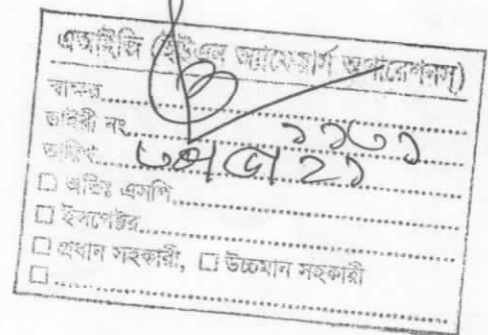 এআইজি (ইউএন অ্যাফেয়ার্স অপারেশনস্)
স্বাক্ষর
ডাইরী নং ১১৩১
তারিখ
□ অতিঃ এসপি
□ ইন্সপেক্টর
□ প্রধান সহকারী, □ উচ্চমান সহকারী
□